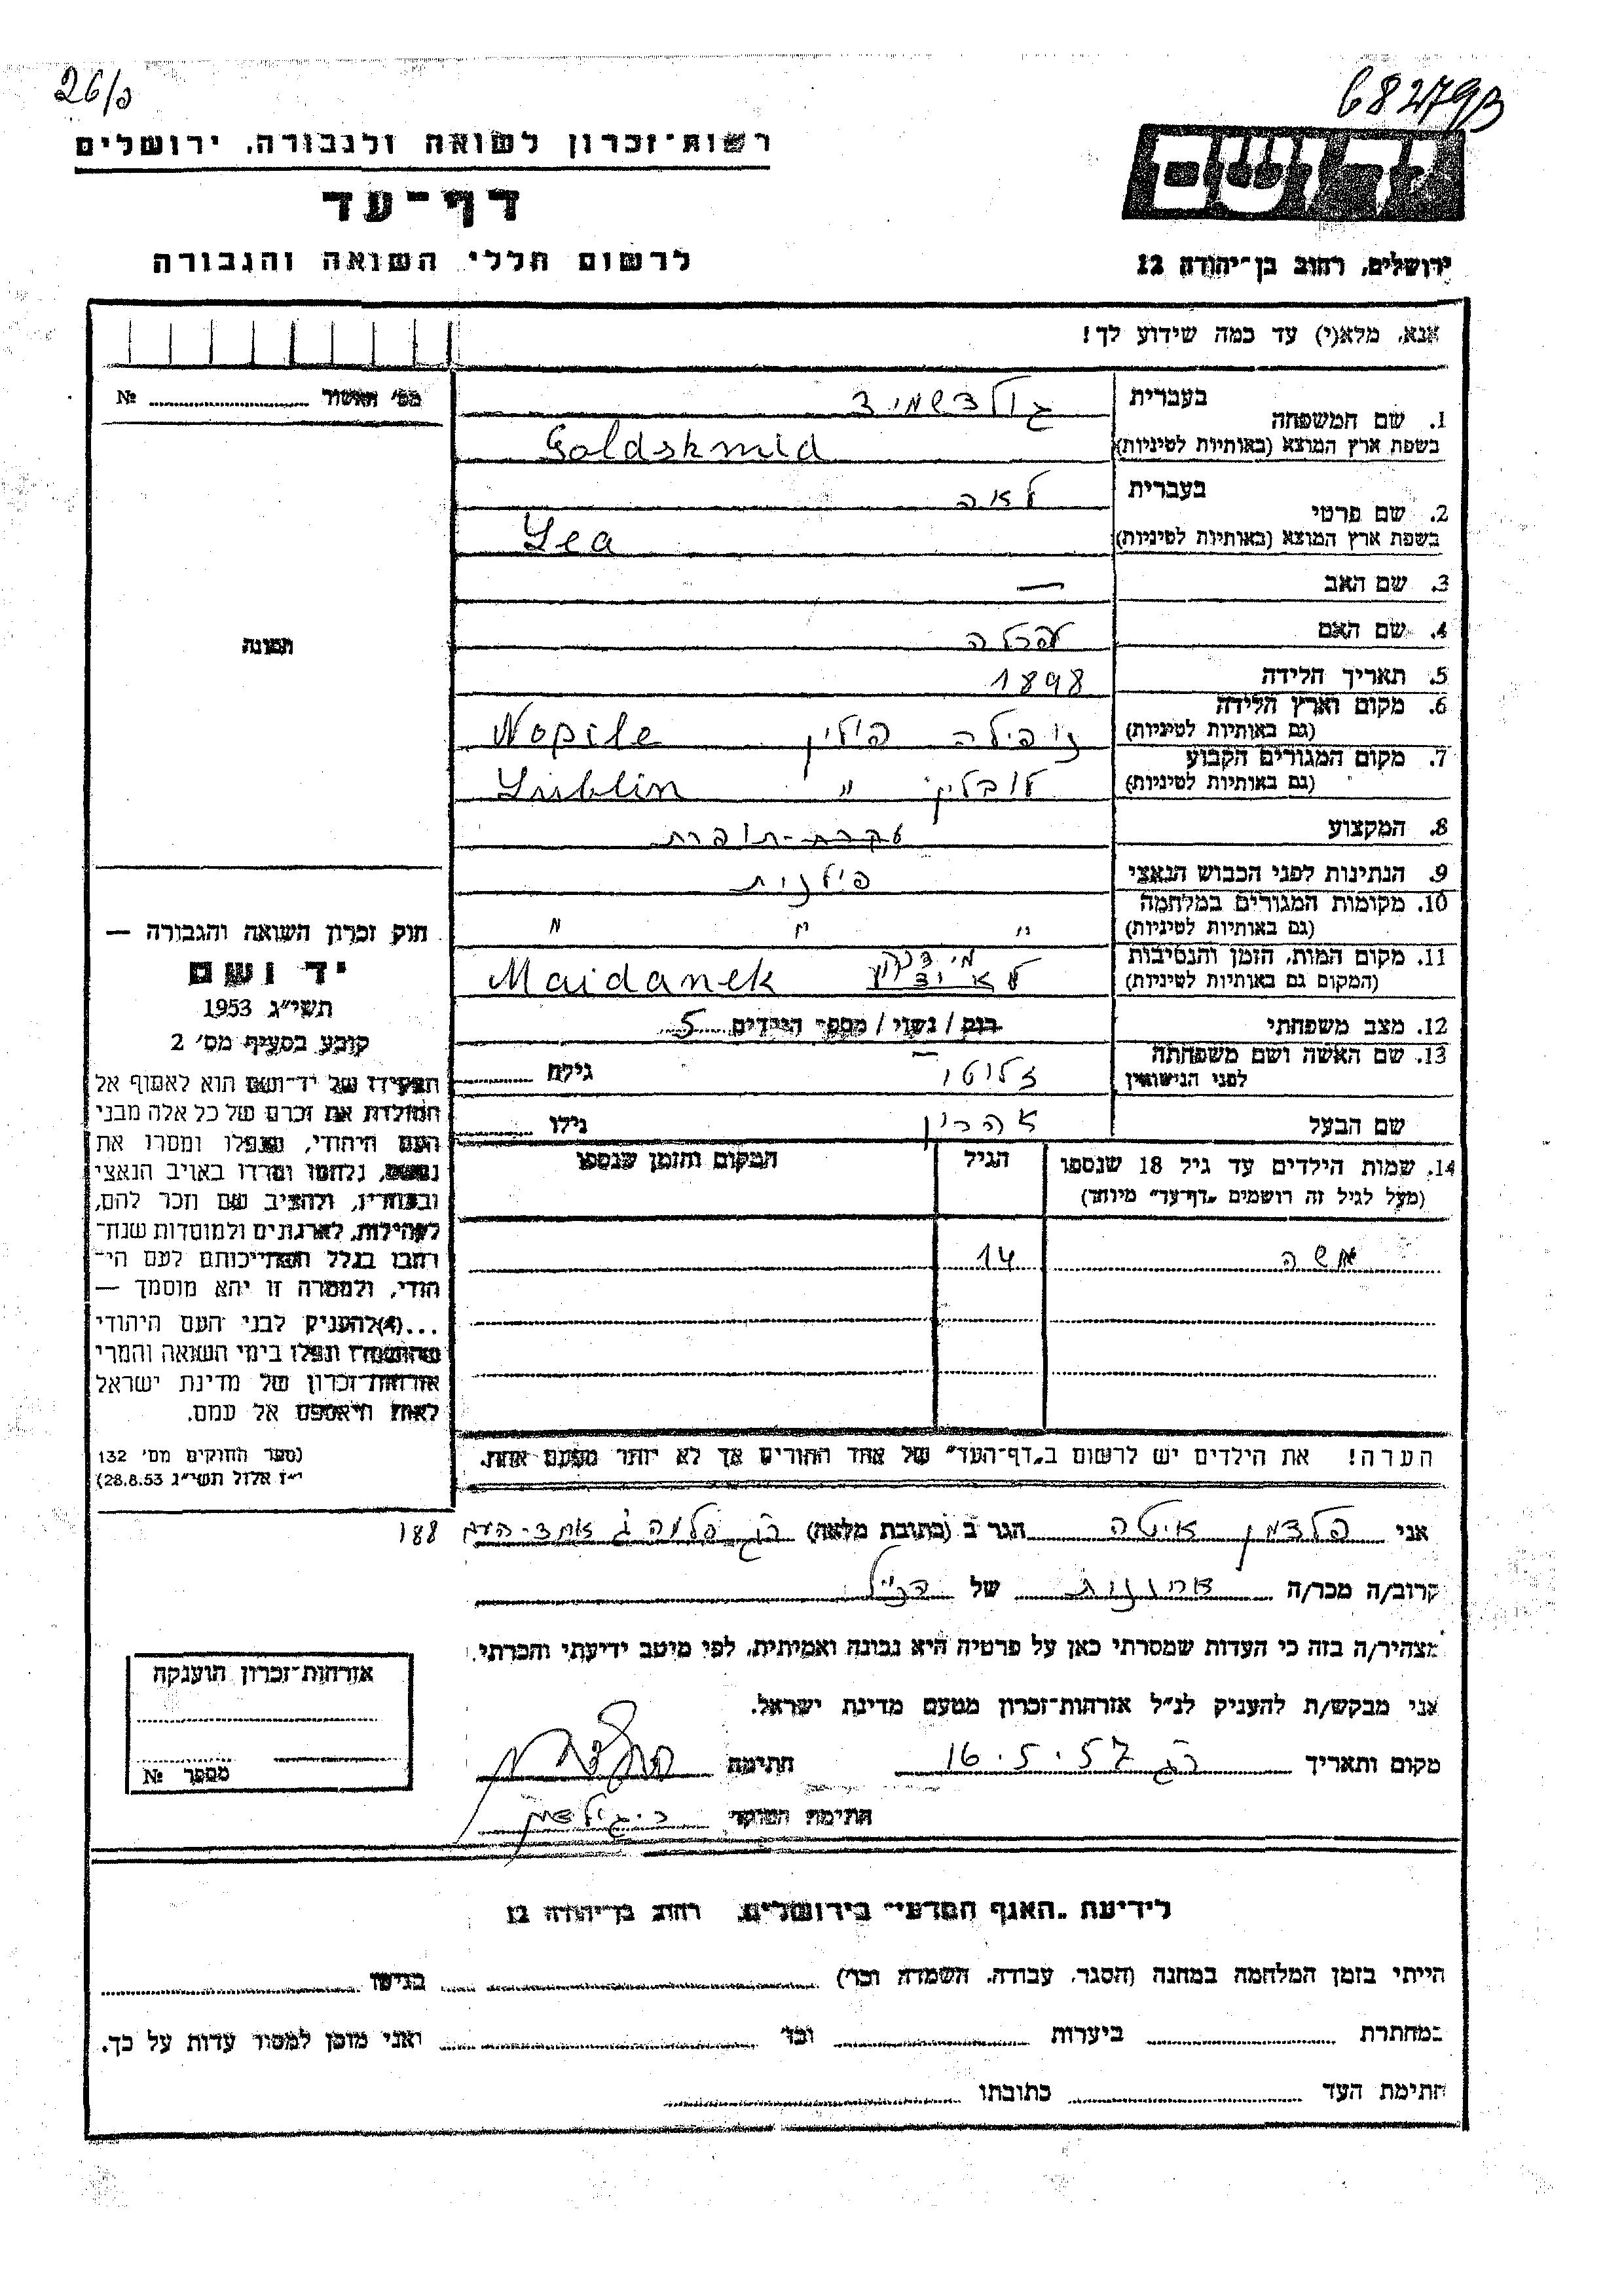 26/כ
68279B
רשות־זכרון לשואה ולגבורה, ירושלים
יד ושם
דף־עד
לרשום חללי השואה והגבורה
ירושלים, רחוב בן־יהודה 12
אנא, מלא(י) עד כמה שידוע לך!
מס' האשור № 
1. שם המשפחה בעברית גולדשמיד
בשפת ארץ המוצא (באותיות לטיניות) Goldshmid
2. שם פרטי בעברית לאה
בשפת ארץ המוצא (באותיות לטיניות) Lea
3. שם האב —
4. שם האם
תמונה
5. תאריך הלידה 1898
6. מקום וארץ הלידה
(גם באותיות לטיניות) נופילה פולין Nopile
7. מקום המגורים הקבוע
(גם באותיות לטיניות) לובלין " Lublin
8. המקצוע עקרת-תופרת
9. הנתינות לפני הכבוש הנאצי פולנית
10. מקומות המגורים במלחמה
(גם באותיות לטיניות) " " "
11. מקום המות, הזמן והנסיבות
(המקום גם באותיות לטיניות) מידנק Maidanek
12. מצב משפחתי רווק / נשוי / מספר הילדים 5
13. שם האשה ושם משפחתה
לפני הנישואין גילה
שם הבעל אהרון גילו
14. שמות הילדים עד גיל 18 שנספו הגיל המקום והזמן שנספו
(מעל לגיל זה רושמים „דף־עד" מיוחד)
משה 14
הערה! את הילדים יש לרשום ב„דף־העד" של אחד ההורים אך לא יותר מפעם אחת.
חוק זכרון השואה והגבורה —
יד ושם
תשי"ג 1953
קובע בסעיף מס' 2
תפקידו של יד־ושם הוא לאסוף אל
המולדת את זכרם של כל אלה מבני
העם היהודי, שנפלו ומסרו את
נפשם, נלחמו ומרדו באויב הנאצי
ובעוזריו, ולהציב שם וזכר להם,
לקהילות, לארגונים ולמוסדות שנח־
רבו בגלל השתייכותם לעם הי־
הודי, ולמטרה זו יהא מוסמך —
...(4)להעניק לבני העם היהודי
שהושמדו ונפלו בימי השואה והמרי
אזרחות־זכרון של מדינת ישראל
לאות היאספם אל עמם.
(ספר החוקים מס' 132
י"ז אלול תשי"ג 28.8.53)
אני פלדמן איטה הגר ב (כתובת מלאה) אחד-העם 188
קרוב/ה מכר/ה של הנ"ל
מצהיר/ה בזה כי העדות שמסרתי כאן על פרטיה היא נכונה ואמיתית, לפי מיטב ידיעתי והכרתי.
אני מבקש/ת להעניק לנ"ל אזרחות־זכרון מטעם מדינת ישראל.
מקום ותאריך רג 16.5.57 חתימה
חתימת הפוקד
אזרחות־זכרון הוענקה
מספר №
לידיעת „האגף המדעי" בירושלים, רחוב בן־יהודה 12
הייתי בזמן המלחמה במחנה (הסגר, עבודה, השמדה וכד') בגיטו
במחתרת ביערות וכד' ואני מוכן למסור עדות על כך.
חתימת העד כתובתו